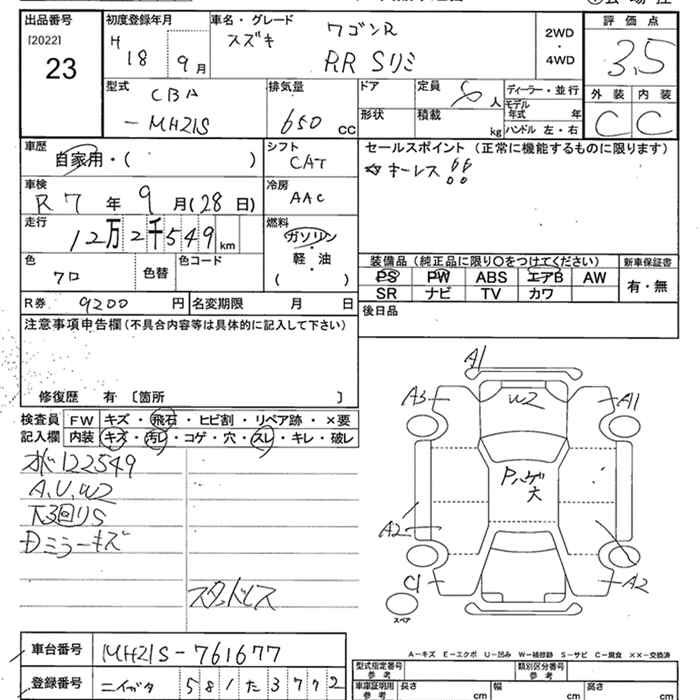 出品番号
[2022]
23
初度登録年月
H 18 9月
車名・グレード
スズキ ワゴンR
RR Sリミ
2WD
・
4WD
評価点
3.5
外装 内装
C C
型式
CBA
-MH21S
排気量
650 cc
ドア
形状
定員 人
積載 kg
ディーラー・並行
モデル年式 年
ハンドル 左・右
車歴
自家用・( )
シフト
CAT
セールスポイント (正常に機能するものに限ります)
☆キーレス!!
車検
R 7 年 9 月(28日)
冷房
AAC
走行
12万2千549 km
燃料
ガソリン
・
軽・油
( )
色
クロ
色替
色コード
装備品 (純正品に限り〇をつけてください)
PS PW ABS エアB AW
SR ナビ TV カワ
新車保証書
有・無
R券 9200 円
名変期限 月 日
後日品
注意事項申告欄(不具合内容等は具体的に記入して下さい)
修復歴 有 [箇所 ]
検査員
記入欄
FW キズ・飛石・ヒビ割・リペア跡・×要
内装 キズ・汚レ・コゲ・穴・スレ・キレ・破レ
122549
A,U,W2
下回りS
Dミラーキズ
スタッドレス
A1
A3 W2 A1
Pハゲ
大
A2
C1 A2
スペア
A-キズ E-エクボ U-凹み W-補修跡 S-サビ C-腐食 ××-交換済
車台番号 MH21S-761677
登録番号 ニイガタ 581た3772
型式指定番号
参考
類別区分番号
参考
車庫証明用
参考
長さ cm 幅 cm 高さ cm